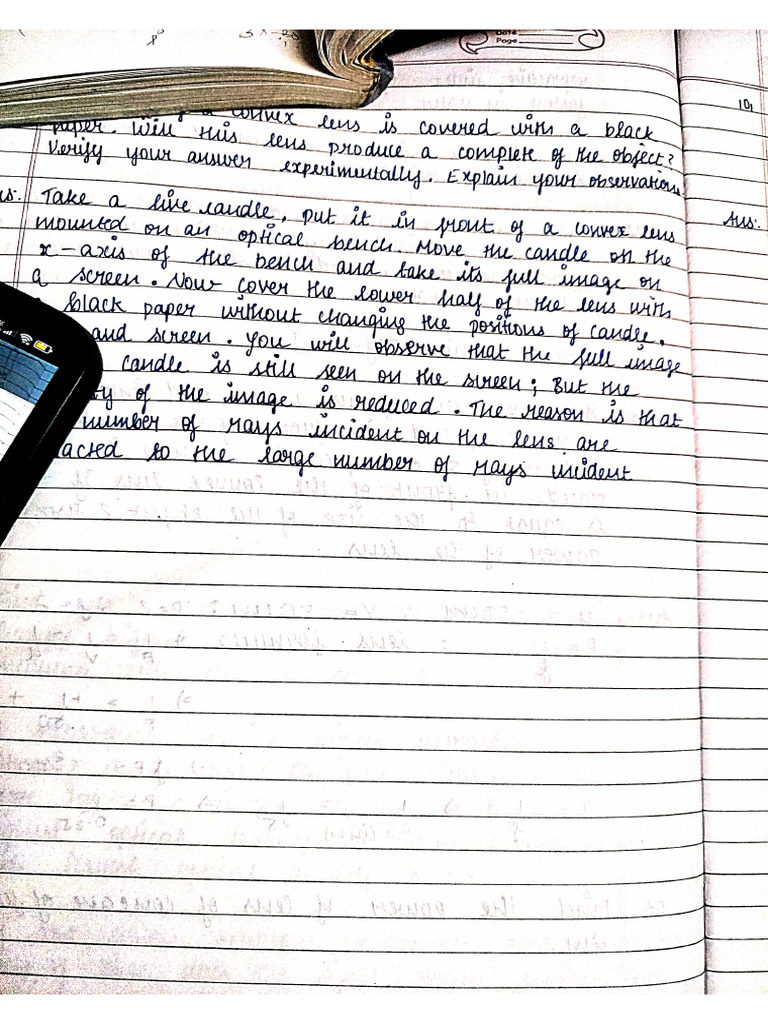 Date
Page
10
a convex lens is covered with a black
paper. Will this lens produce a complete of the object?
Verify your answer experimentally. Explain your observations.
ns. Take a live candle, put it in front of a convex lens
mounted on an optical bench. Move the candle on the
x-axis of the bench and take its full image on
a screen. Now cover the lower half of the lens with
black paper without changing the positions of candle,
and screen. You will observe that the full image
candle is still seen on the screen; But the
ty of the image is reduced. The reason is that
number of rays incident on the lens are
acted to the large number of rays incident
Ans.